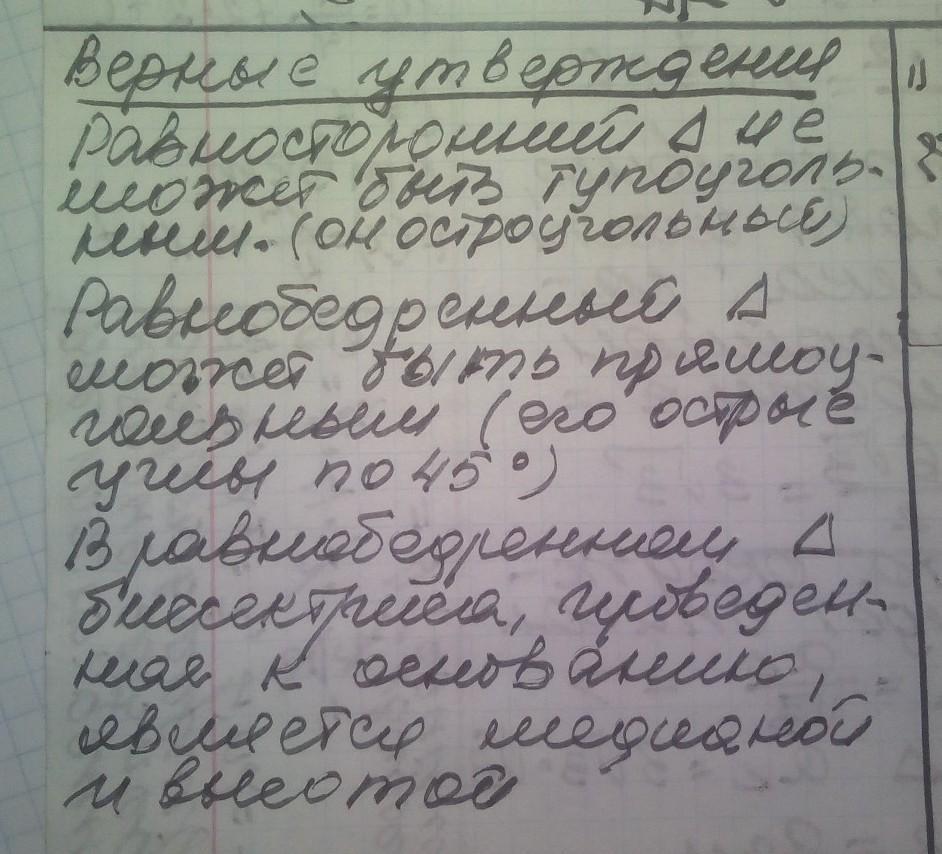 Верные утверждения
Равносторонний Δ не
может быть тупоуголь-
ным. (он остроугольный)
Равнобедренный Δ
может быть прямоу-
гольным (его острые
углы по 45°)
В равнобедренном Δ
биссектриса, проведен-
ная к основанию,
является медианой
и высотой